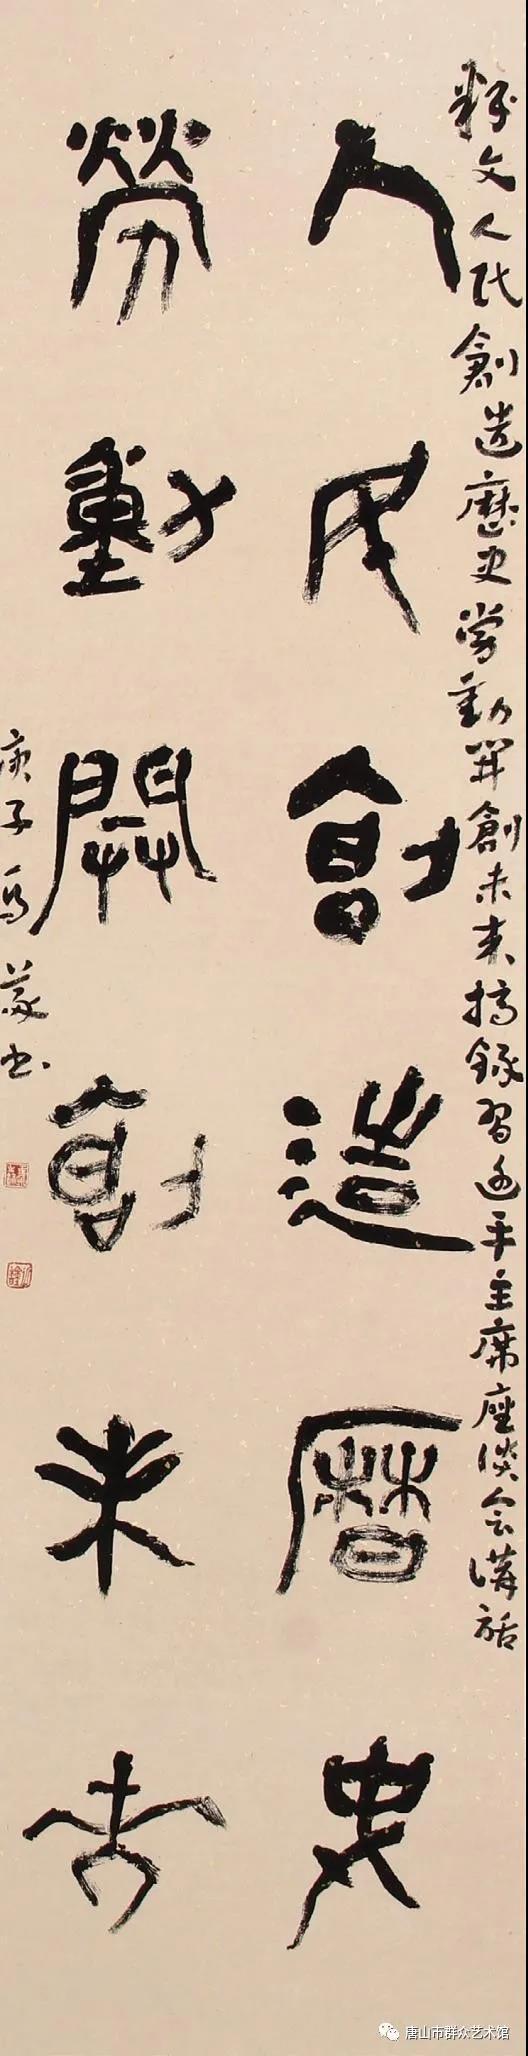 釋文人民創造歷史勞動開創未来摘錄習近平主席座談会講話
人民創造曆史
勞動開創未来
庚子馬義书
唐山市群众艺术馆